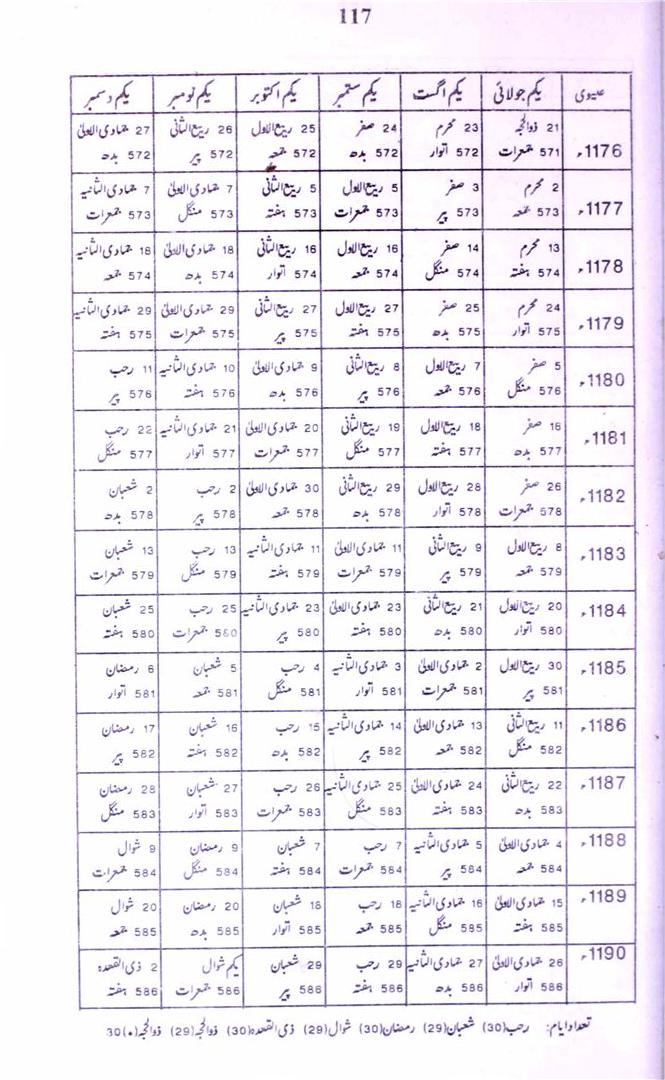 117
عیسوی یکم جولائی یکم اگست یکم ستمبر یکم اکتوبر یکم نومبر یکم دسمبر
1176ء 21 ذوالحجہ 23 محرم 24 صفر 25 ربیع الاول 26 ربیع الثانی 27 جمادی الاولیٰ
571 جمعرات 572 اتوار 572 بدھ 572 جمعہ 572 پیر 572 بدھ
1177ء 2 محرم 3 صفر 5 ربیع الاول 5 ربیع الثانی 7 جمادی الاولیٰ 7 جمادی الثانیہ
573 جمعہ 573 پیر 573 جمعرات 573 ہفتہ 573 منگل 573 جمعرات
1178ء 13 محرم 14 صفر 16 ربیع الاول 16 ربیع الثانی 18 جمادی الاولیٰ 18 جمادی الثانیہ
574 ہفتہ 574 منگل 574 جمعہ 574 اتوار 574 بدھ 574 جمعہ
1179ء 24 محرم 25 صفر 27 ربیع الاول 27 ربیع الثانی 29 جمادی الاولیٰ 29 جمادی الثانیہ
575 اتوار 575 بدھ 575 ہفتہ 575 پیر 575 جمعرات 575 ہفتہ
1180ء 5 صفر 7 ربیع الاول 8 ربیع الثانی 9 جمادی الاولیٰ 10 جمادی الثانیہ 11 رجب
576 منگل 576 جمعہ 576 پیر 576 بدھ 576 ہفتہ 576 پیر
1181ء 16 صفر 18 ربیع الاول 19 ربیع الثانی 20 جمادی الاولیٰ 21 جمادی الثانیہ 22 رجب
577 بدھ 577 ہفتہ 577 منگل 577 جمعرات 577 اتوار 577 منگل
1182ء 26 صفر 28 ربیع الاول 29 ربیع الثانی 30 جمادی الاولیٰ 2 رجب 2 شعبان
578 جمعرات 578 اتوار 578 بدھ 578 جمعہ 578 پیر 578 بدھ
1183ء 8 ربیع الاول 9 ربیع الثانی 11 جمادی الاولیٰ 11 جمادی الثانیہ 13 رجب 13 شعبان
579 جمعہ 579 پیر 579 جمعرات 579 ہفتہ 579 منگل 579 جمعرات
1184ء 20 ربیع الاول 21 ربیع الثانی 23 جمادی الاولیٰ 23 جمادی الثانیہ 25 رجب 25 شعبان
580 اتوار 580 بدھ 580 ہفتہ 580 پیر 580 جمعرات 580 ہفتہ
1185ء 30 ربیع الاول 2 جمادی الاولیٰ 3 جمادی الثانیہ 4 رجب 5 شعبان 6 رمضان
581 پیر 581 جمعرات 581 اتوار 581 منگل 581 جمعہ 581 اتوار
1186ء 11 ربیع الثانی 13 جمادی الاولیٰ 14 جمادی الثانیہ 15 رجب 16 شعبان 17 رمضان
582 منگل 582 جمعہ 582 پیر 582 بدھ 582 ہفتہ 582 پیر
1187ء 22 ربیع الثانی 24 جمادی الاولیٰ 25 جمادی الثانیہ 26 رجب 27 شعبان 28 رمضان
583 بدھ 583 ہفتہ 583 منگل 583 جمعرات 583 اتوار 583 منگل
1188ء 4 جمادی الاولیٰ 5 جمادی الثانیہ 7 رجب 7 شعبان 9 رمضان 9 شوال
584 جمعہ 584 پیر 584 جمعرات 584 ہفتہ 584 منگل 584 جمعرات
1189ء 15 جمادی الاولیٰ 16 جمادی الثانیہ 18 رجب 18 شعبان 20 رمضان 20 شوال
585 ہفتہ 585 منگل 585 جمعہ 585 اتوار 585 بدھ 585 جمعہ
1190ء 26 جمادی الاولیٰ 27 جمادی الثانیہ 29 رجب 29 شعبان یکم شوال 2 ذی القعدہ
586 اتوار 586 بدھ 586 ہفتہ 586 پیر 586 جمعرات 586 ہفتہ
تعداد ایام: رجب(30) شعبان(29) رمضان(30) شوال(29) ذی القعدہ(30) ذوالحجہ(29) ذوالحجہ(•)30